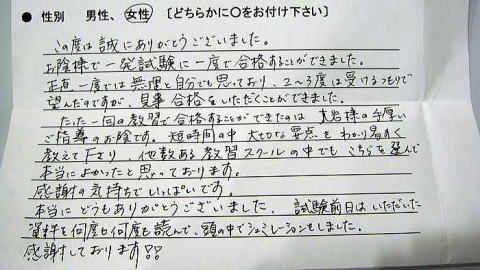 ● 性別　男性、 女性 〔どちらかに○をお付け下さい〕
この度は誠にありがとうございました。
お陰様で一発試験に一度で合格することができました。
正直一度では無理と自分でも思っており、2〜3度は受けるつもりで
望んだのですが、見事合格をいただくことができました。
たった一回の教習で合格することができたのは 大岩様の手厚い
ご指導のお陰です。短時間の中 大切な要点を わかり易く
教えて下さり 他数ある教習スクールの中でも こちらを選んで
本当によかったと思っております。
感謝の気持ちでいっぱいです。
本当に どうもありがとうございました。 試験前日は いただいた
資料を何度も何度も読んで、頭の中でシュミレーションをしました。
感謝しております!!